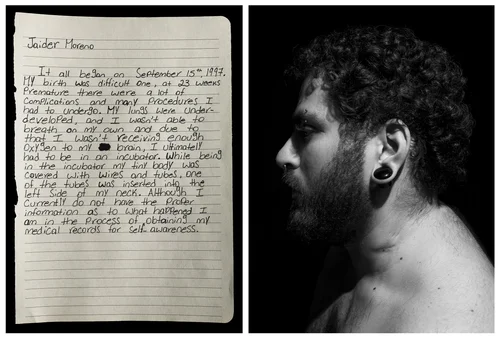 Jaider Moreno
It all began on September 15th 1997.
My birth was difficult one, at 23 weeks
Premature there were a lot of
Complications and many Procedures I
had to undergo. My lungs were under-
developed, and I wasn't able to
breath on my own and due to
that I wasn't receiving enough
Oxygen to my brain, I ultimately
had to be in an incubator. While being
in the incubator my tiny body was
covered with wires and tubes, one
of the tubes was inserted into the
left side of my neck. Although I
Currently do not have the Proper
information as to what happened I
am in the Process of obtaining my
medical records for self-awareness.